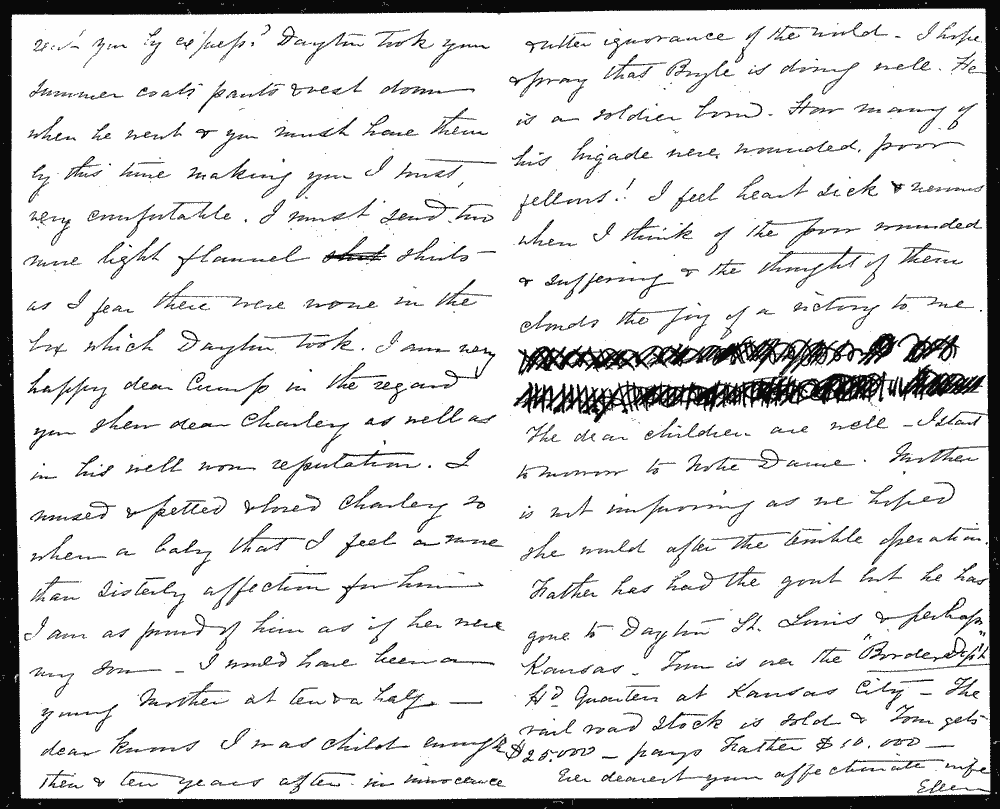 sent you by express? Dayton took your
summer coats pants & vest down
when he went & you must have them
by this time making you I trust,
very comfortable. I must send two
more light flannel shirts
as I fear there were none in the
box which Dayton took. I am very
happy dear Cump in the regard
you shew dear Charley as well as
in his well won reputation. I
nursed & petted & loved Charley so
when a baby that I feel a more
than sisterly affection for him
I am as proud of him as if he were
my son — I would have been a
young Mother at ten & a half —
dear knows I was child enough
then & ten years after in innocence
& utter ignorance of the world — I hope
& pray that Boyle is doing well. He
is a soldier born. How many of
his brigade were wounded, poor
fellows! I feel heart sick & nervous
when I think of the poor wounded
& suffering & the thought of them
clouds the joy of a victory to me.
The dear children are well — I start
tomorrow to Notre Dame. Mother
is not improving as we hoped
she would after the terrible operation.
Father has had the gout but he has
gone to Dayton St. Louis & perhaps
Kansas. Tom is over the "Border Dep't"
Hd Quarters at Kansas City — The
rail road stock is sold & Tom gets
$25.000 — pays Father $10.000 —
Ever dearest your affectionate wife
Ellen